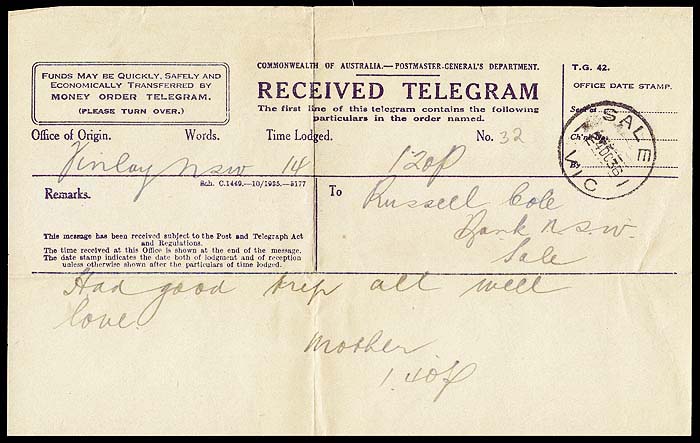 COMMONWEALTH OF AUSTRALIA.—POSTMASTER-GENERAL'S DEPARTMENT.
T.G. 42.
FUNDS MAY BE QUICKLY, SAFELY AND
ECONOMICALLY TRANSFERRED BY
MONEY ORDER TELEGRAM.
(PLEASE TURN OVER.)
RECEIVED TELEGRAM
The first line of this telegram contains the following
particulars in the order named.
OFFICE DATE STAMP.
SALE
VIC
Office of Origin. Words. Time Lodged. No. 32
Finlay NSW 14 120p
Sch. C.1449.—10/1935.—5177
Remarks.
To Russell Cole
Bank NSW
Sale
This message has been received subject to the Post and Telegraph Act
and Regulations.
The time received at this Office is shown at the end of the message.
The date stamp indicates the date both of lodgment and of reception
unless otherwise shown after the particulars of time lodged.
Had good trip all well
love
Mother
1.40p